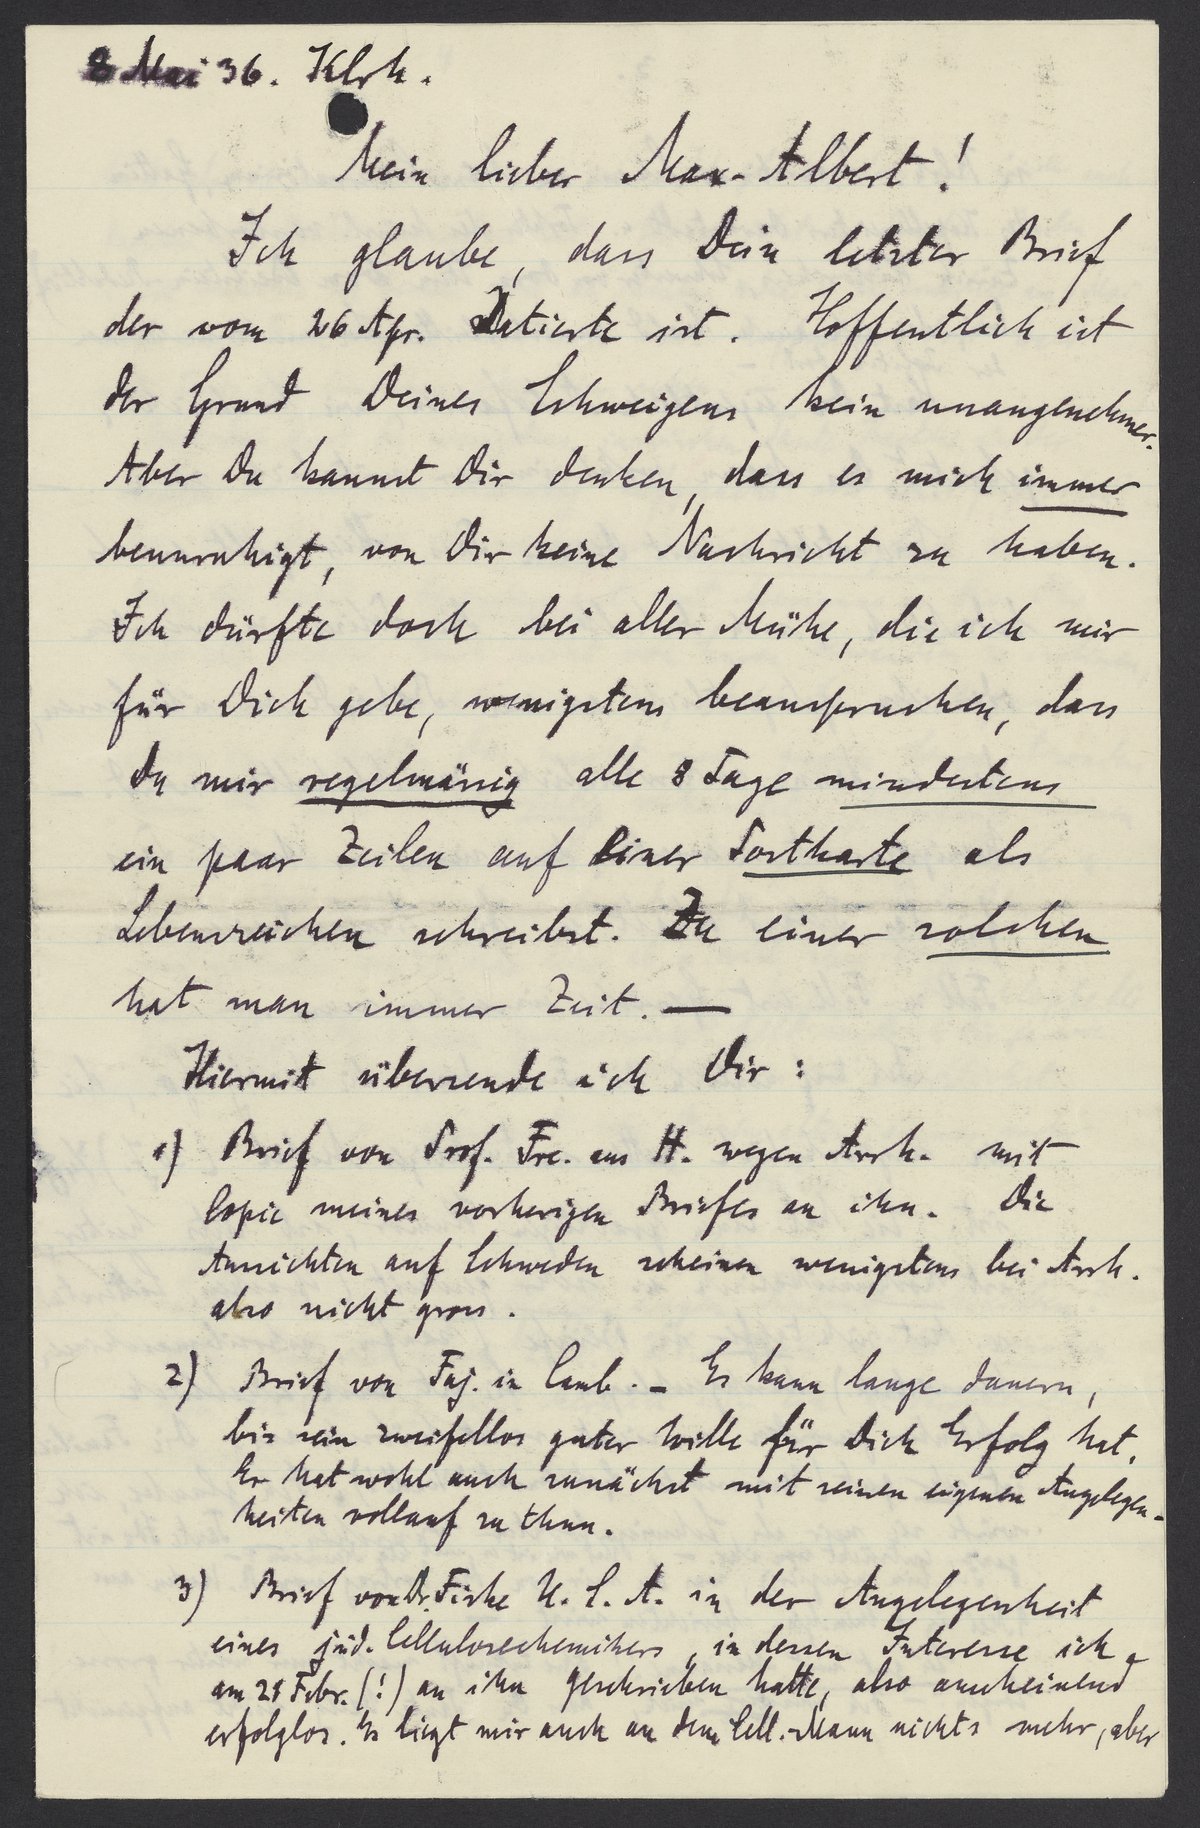 8 Mai 36. Klrh.
Mein lieber Max-Albert!
Ich glaube, dass Dein letzter Brief
der vom 26 Apr. Datierte ist. Hoffentlich ist
der Grund Deines Schweigens kein unangenehmer.
Aber Du kannst Dir denken, dass es mich immer
beunruhigt, von Dir keine Nachricht zu haben.
Ich dürfte doch bei aller Mühe, die ich mir
für Dich gebe, wenigstens beanspruchen, dass
Du mir regelmässig alle 8 Tage mindestens
ein paar Zeilen auf einer Postkarte als
Lebenszeichen schreibst. Zu einer solchen
hat man immer Zeit. —
Hiermit übersende ich Dir:
1) Brief von Prof. Fre. aus H. wegen Arch. mit
Copie meines vorherigen Briefes an ihn. Die
Aussichten auf Schweden scheinen wenigstens bei Arch.
also nicht gross.
2) Brief von Faj. in Camb. - Es kann lange dauern,
bis sein zweifellos guter Wille für Dich Erfolg hat.
Er hat wohl auch zunächst mit seinen eigenen Angelegen-
heiten vollauf zu thun.
3) Brief von Dr. Fiske U.S.A. in der Angelegenheit
eines jüd. Cellulosechemikers, in dessen Interesse ich
am 28 Febr. (!) an ihn geschrieben hatte, also anscheinend
erfolglos. Es liegt mir auch an dem Cell.-Mann nichts mehr, aber